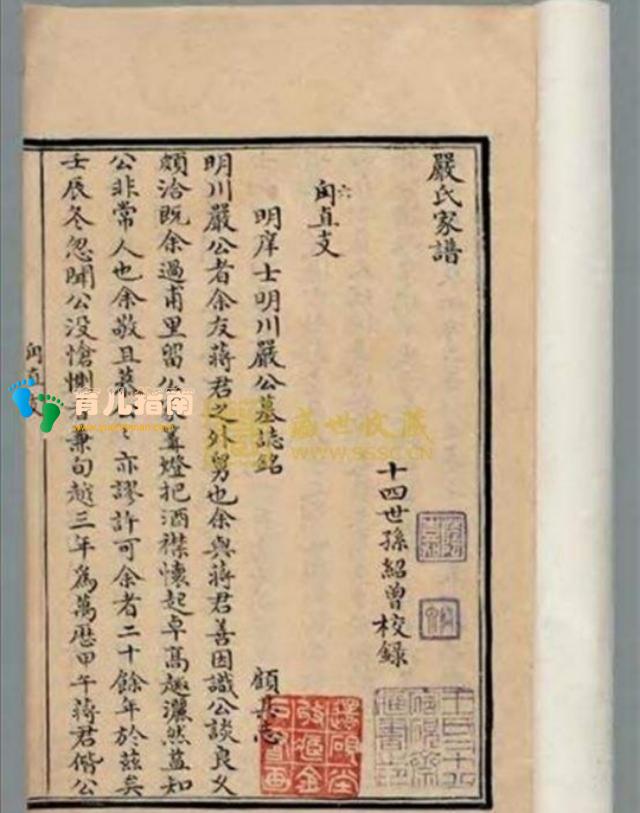 嚴氏家譜
十四世孫紹曾校錄
六
甪直支
明庠士明川嚴公墓誌銘
顧其志
明川嚴公者余友蔣君之外舅也余與蔣君善因識公談良久
頗洽既余過甫里留公家篝燈把酒襟懷起卓高趣灑然益知
公非常人也余敬且慕公〻亦謬許可余者二十餘年於茲矣
壬辰冬忽聞公没愴惻者兼旬越三年為萬歷甲午蔣君偕公
甪直支
育儿指南
盛世收藏
WWW.SSSC.CN